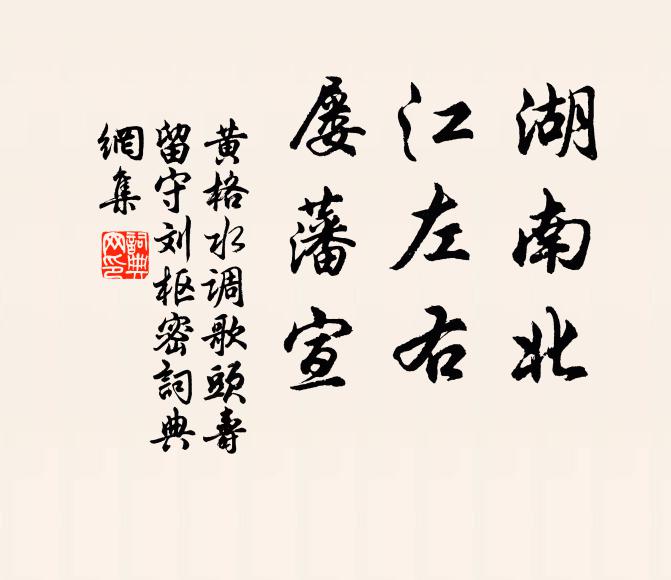 湖南北
江左右
屡藩宣
黄格水调歌頭壽
留守刘枢密詞典
網集
詞典
网印